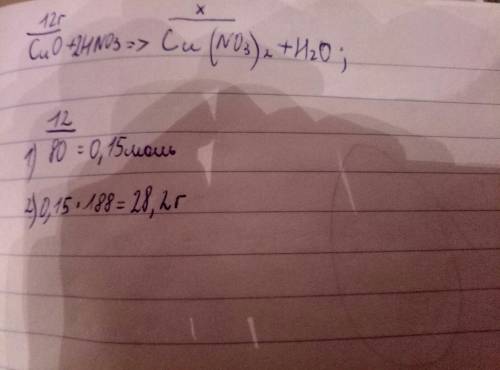 12г x
CuO+2HNO3=> Cu(NO3)2+H2O;
1) 12/80=0,15моль
2) 0,15·188=28,2г